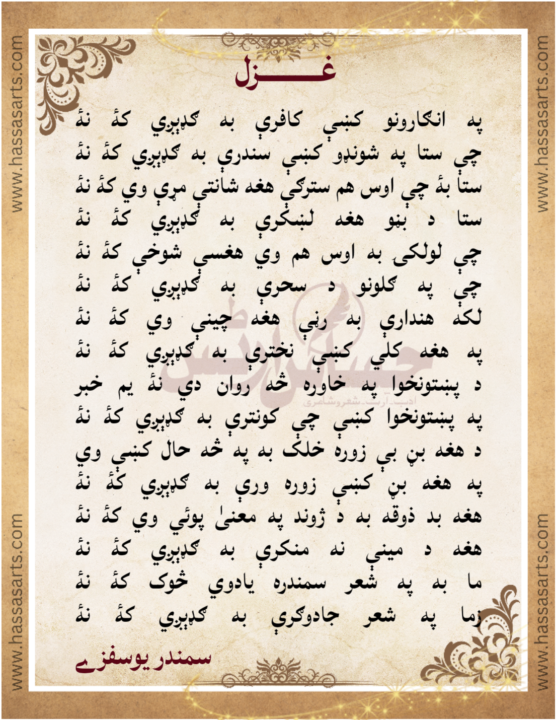 غزل
په انګارونو کښې کافرې به ګډېږي کۀ نۀ
چې ستا په شونډو کښې سندرې به ګډېږي کۀ نۀ
ستا بۀ چې اوس هم سترګې هغه شانتې مړې وي کۀ نۀ
ستا د بڼو هغه لښکرې به ګډېږي کۀ نۀ
چې لولکۍ به اوس هم وي هغسې شوخې کۀ نۀ
چې په ګلونو د سحرې به ګډېږي کۀ نۀ
لکه هندارې به رڼې هغه چينې وي کۀ نۀ
په هغه کلي کښې نخترې به ګډېږي کۀ نۀ
د پښتونخوا په خاوره څه روان دي نۀ يم خبر
په پښتونخوا کښې چې کونترې به ګډېږي کۀ نۀ
د هغه بڼ بې زوره خلک به په څه حال کښې وي
په هغه بڼ کښې زوره ورې به ګډېږي کۀ نۀ
هغه بد ذوقه به د ژوند په معنیٰ پوئې وي کۀ نۀ
هغه د مينې نه منکرې به ګډېږي کۀ نۀ
ما به په شعر سمندره يادوي څوک کۀ نۀ
زما په شعر جادوګرې به ګډېږي کۀ نۀ
سمندر يوسفزے
www.hassasarts.com
www.hassasarts.com
www.hassasarts.com
www.hassasarts.com
حساس آرٹس